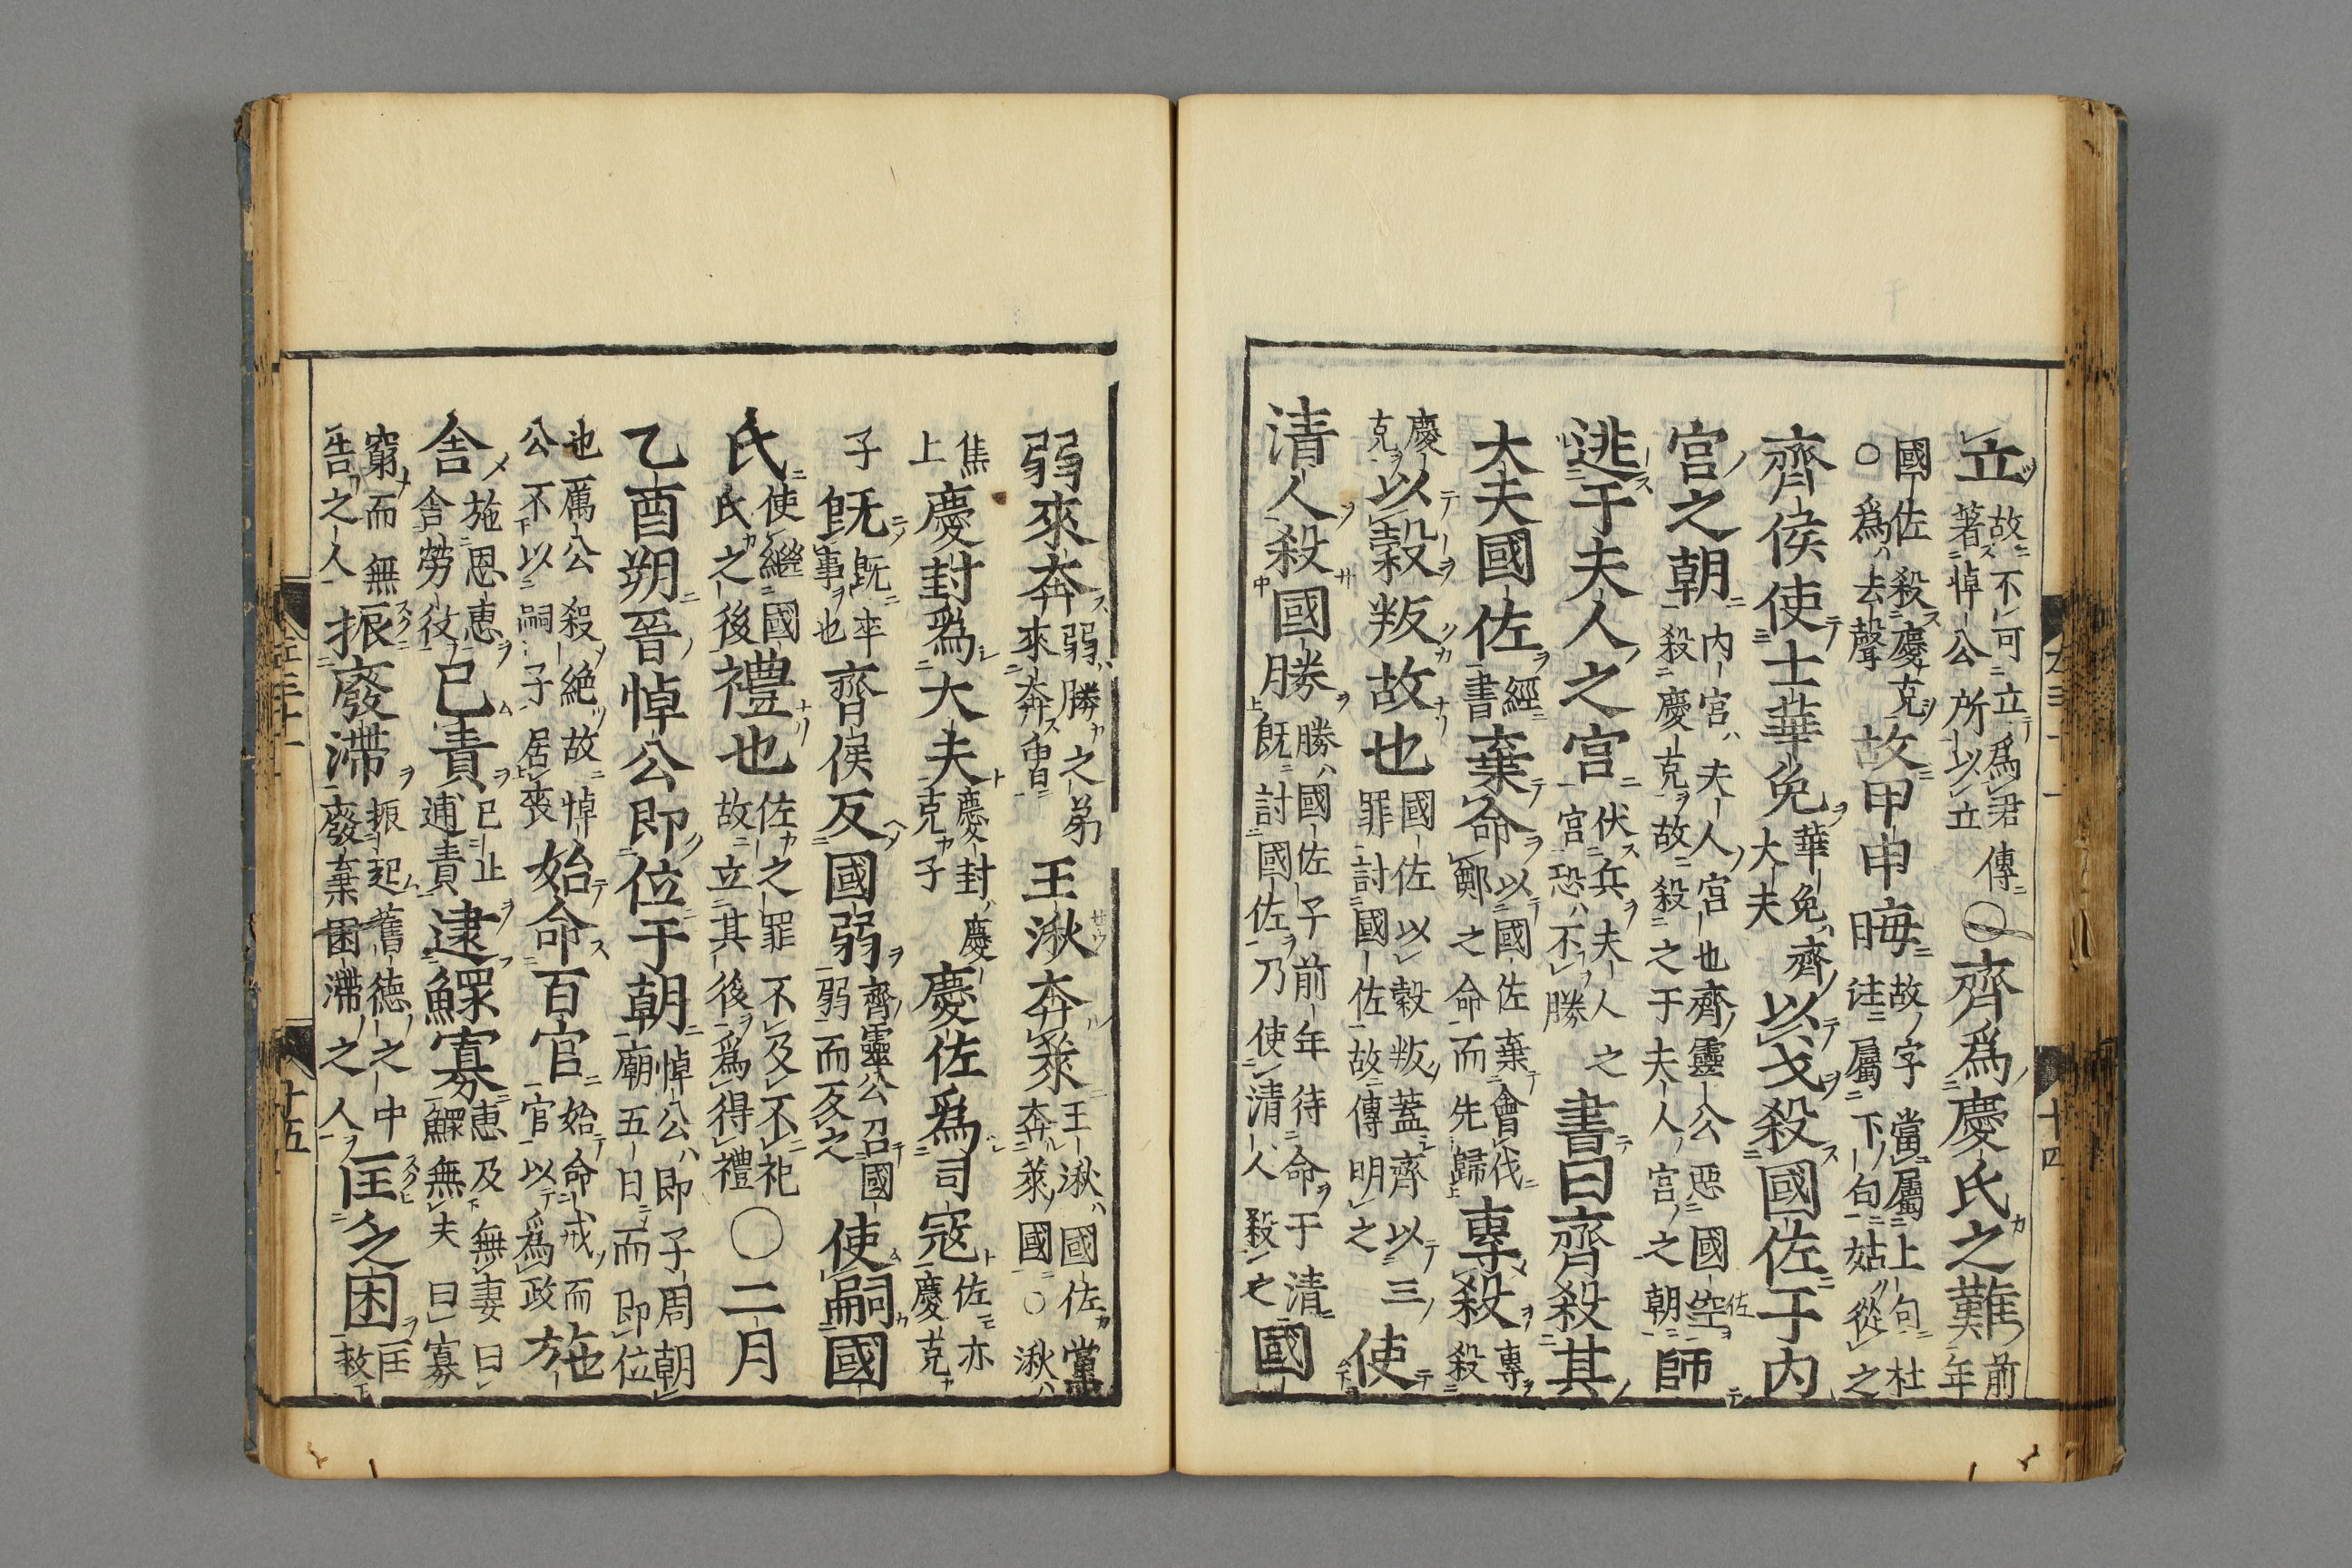 立故不可立爲君傳著悼公所以立○齊爲慶氏之難前年
國佐殺慶克○爲去聲故甲申晦故字當屬上句杜註屬下句姑從之
齊侯使士華免華免齊大夫以戈殺國佐于内
宮之朝内宮夫人宮也齊靈公惡國佐殺慶克故殺之于夫人宮之朝師
逃于夫人之宮伏兵夫人之宮恐不勝書曰齊殺其
大夫國佐經書棄命以國佐棄會伐鄭之命而先歸專殺專殺
慶克以穀叛故也國佐以穀叛蓋齊以三罪討國佐故傳明之使
清人殺國勝勝國佐子前年待命于清既討國佐乃使清人殺之國
十四
弱來奔弱勝之弟來奔魯王湫奔萊王湫國佐黨奔萊國○湫
焦上慶封爲大夫慶封慶克子慶佐爲司寇佐亦慶克
子既既卒事也齊侯反國弱齊靈公召國弱而反之使嗣國
氏使繼國氏之後禮也佐之罪不及不祀故立其後爲得禮○二月
乙酉朔晉悼公即位于朝悼公即子周朝廟五日而即位
也厲公殺絶故悼公不以嗣子居喪始命百官始命戒而官以爲政施
舍施恩惠舍勞役已責已止逋責逮鰥寡惠及無妻曰鰥無夫曰寡
窮而無告之人振廢滯振起舊徳之中廢棄困滯之人匡乏困匡救
十五